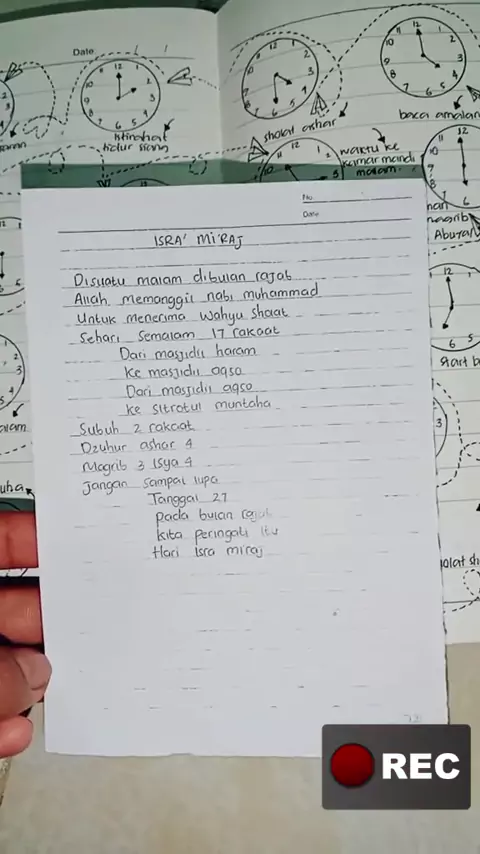 Date
12
1
2
3
4
5
6
7
8
9
10
11
istirahat
tidur siang
sholat ashar
baca amalan
waktu ke
kamar mandi
malam.
No.
Date
ISRA' MI'RAJ
Disuatu malam dibulan rajab
Allah memanggil nabi muhammad
Untuk menerima wahyu shalat
Sehari Semalam 17 rakaat
Dari masjidil haram
Ke masjidil aqso
Dari masjidil aqso
ke sitrotul muntaha
Subuh 2 rakaat
Dzuhur ashar 4
Magrib 3 Isya 4
Jangan sampai lupa
Tanggal 27
pada bulan rajab
kita peringati itu
Hari Isra miraj
REC